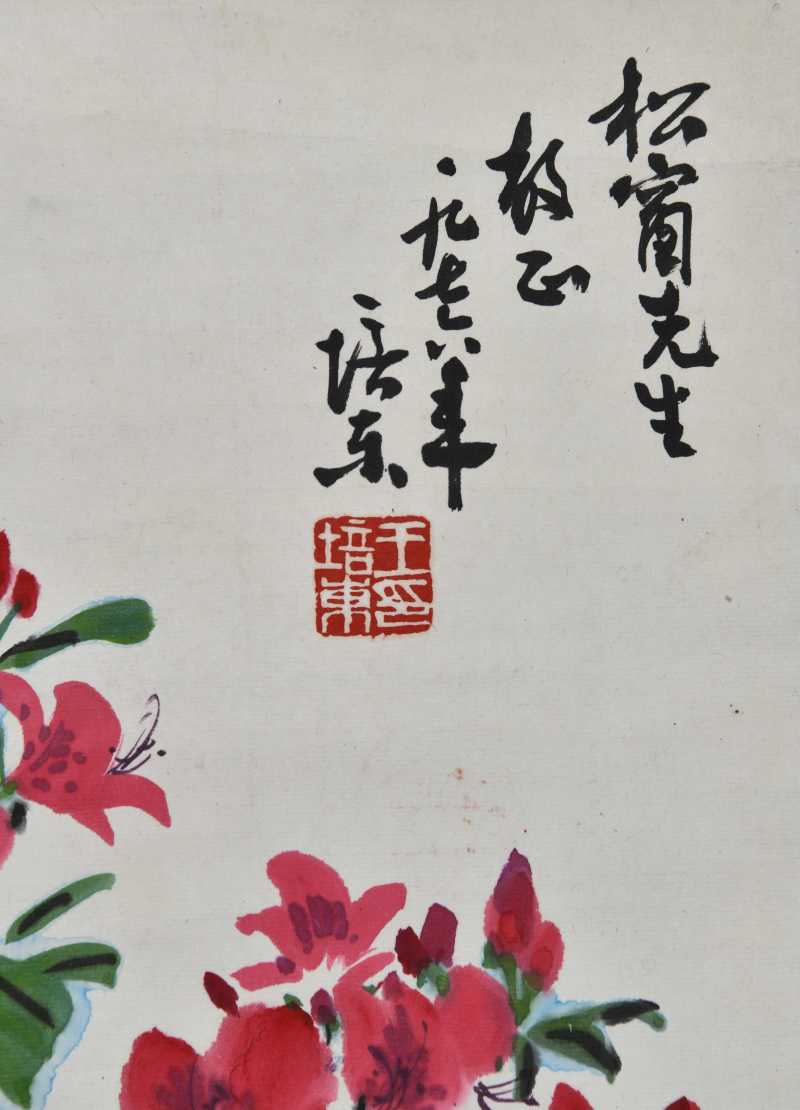 松窗先生
教正
一九七六年
培东
王印
培東